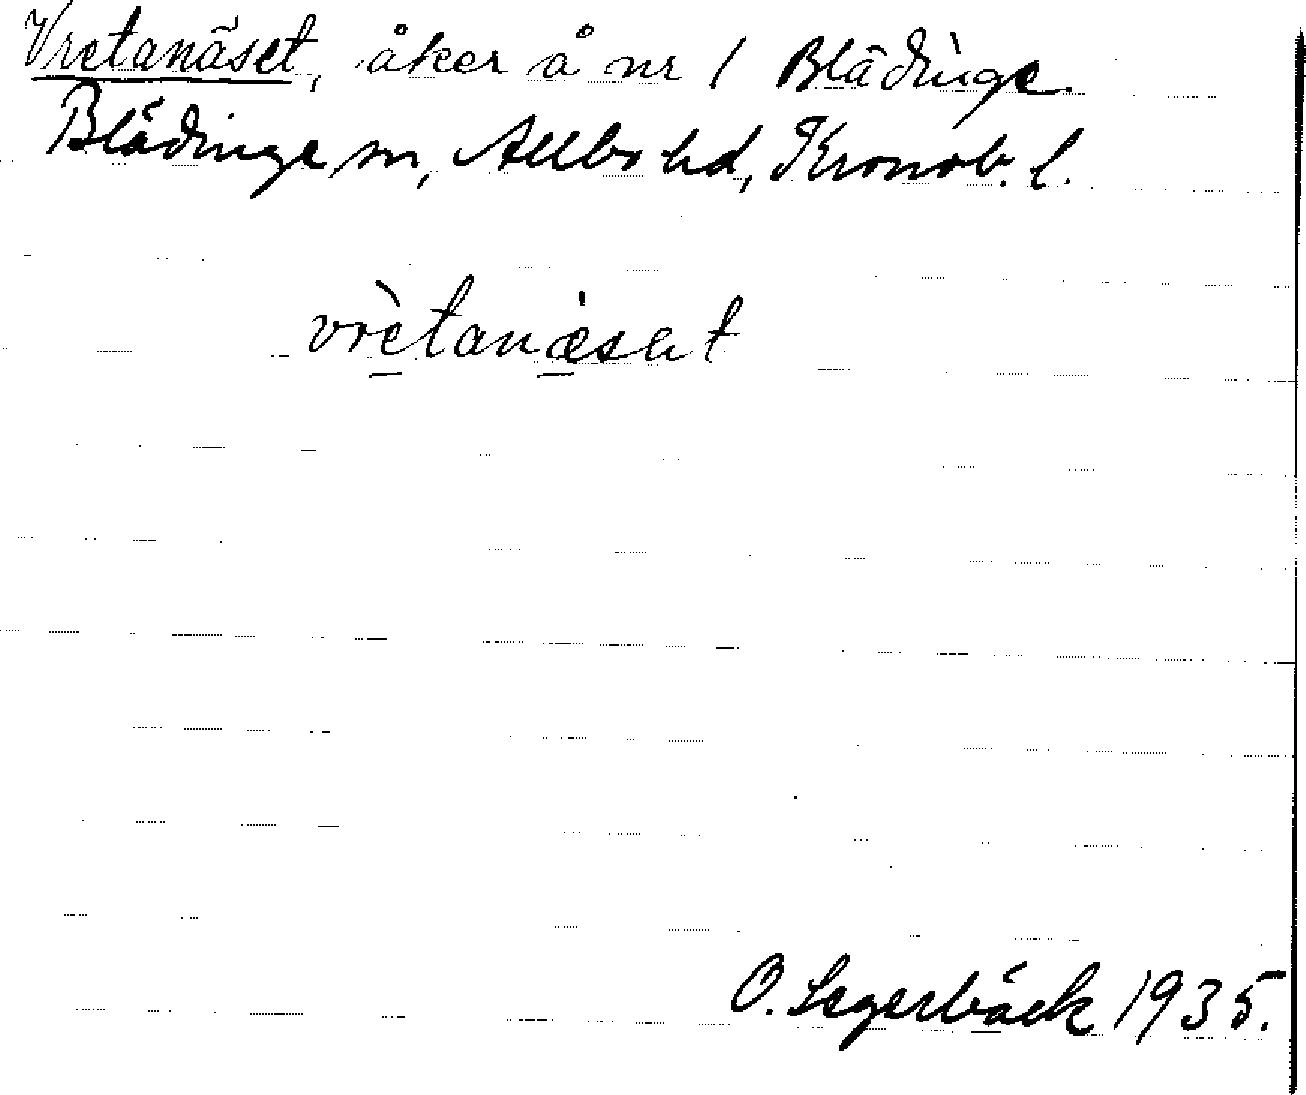 Vretanäset, åker å nr 1 Blädinge.
Blädinge sn, Allbo hd, Kronob. l.
vrètanæ̀sət
O. Segerbäck 1935.